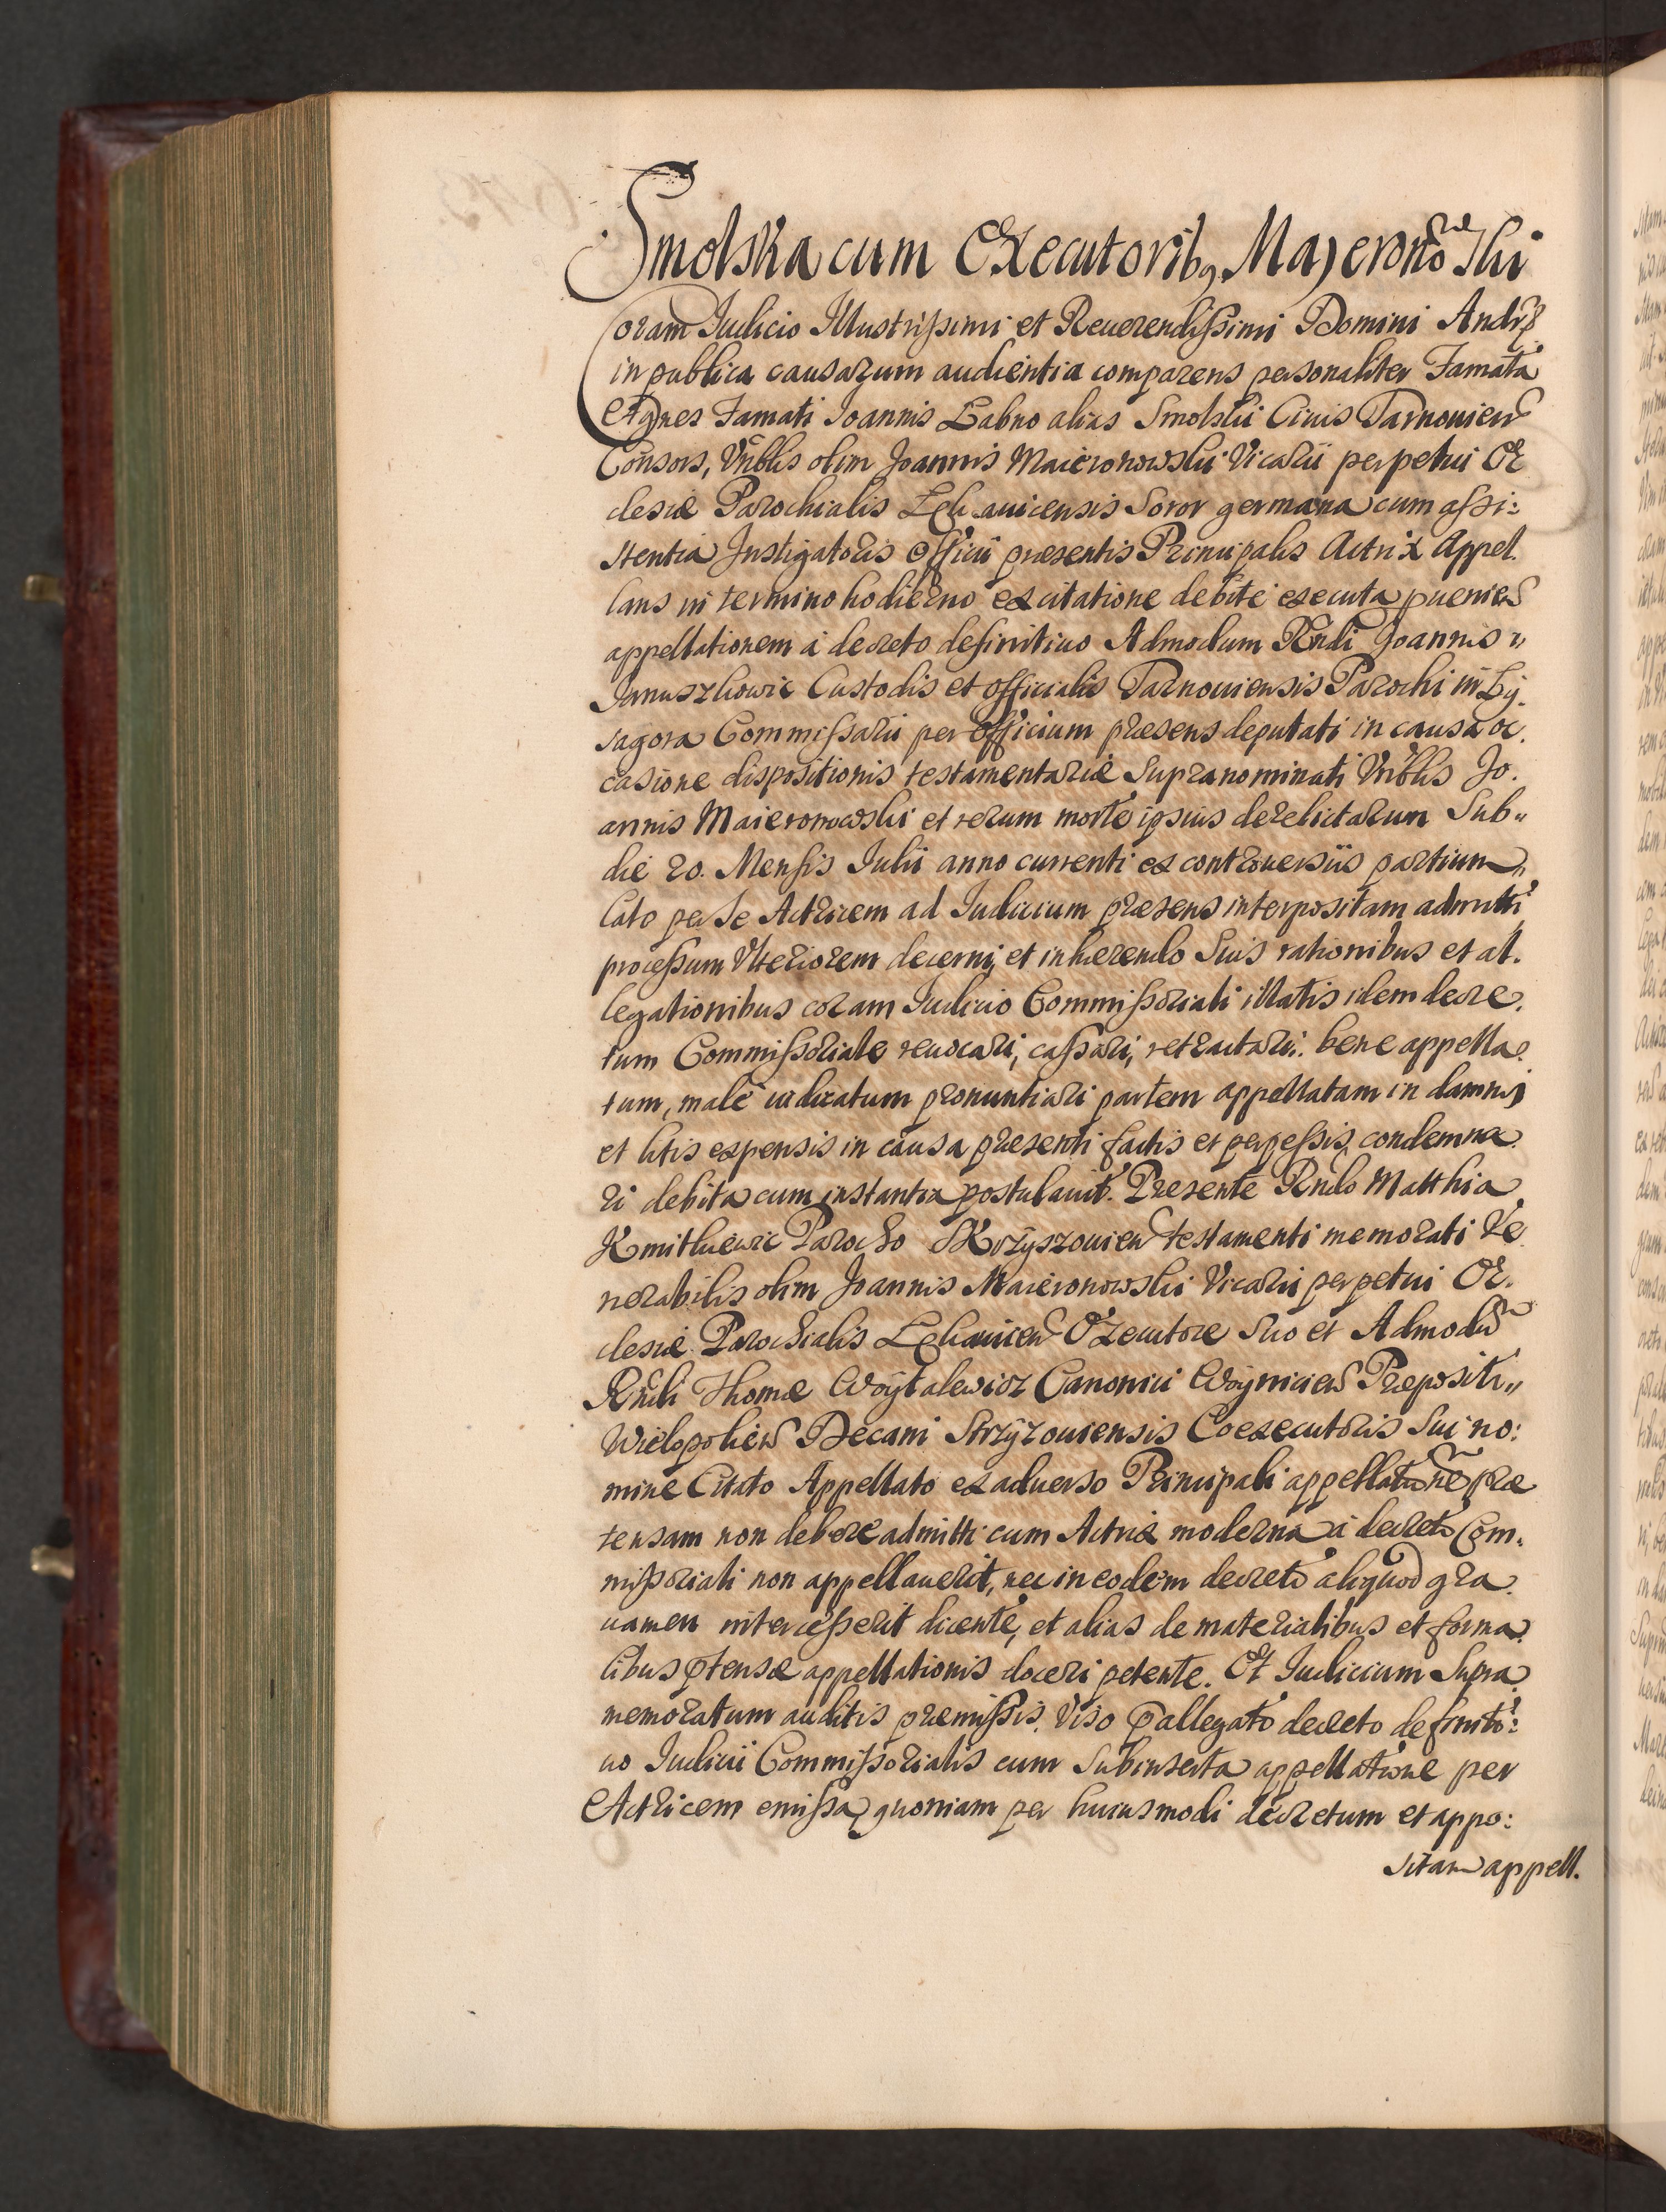 Smolska cum Executorib9 Majerono Ski
Coram Iudicio Illustrissimi et Reuerendissimi Domini Andr
in publica causarum audientia comparens personaliter Famata
Agnes Famati Ioannis Łabno alias Smolski Ciuis Tarnouien
Consors, Vnblis olim Joannis Maieronowski Vicarii perpetui Ec
clesiæ Parochialis auicensis Soror germana cum assi:
stentia Instigatoris Officii præsentis Principalis Actrix Appel.
lans in termino hodierno ex citatione debite executa puenien
appellationem a decreto definitiuo Admodum Rndi Joannis
Januszkowic Custodis et Officialis Tarnouiensis Parochi in Ły.
sagora Commissarii per Officium præsens deputati in causa oc.
casione dispositionis testamentariæ Supranominati Vnblis Jo.
annis Maieronowski et rerum morte ipsius derelictarum Sub
die 20. Mensis Iulii anno currenti ex controuersiis partium
lato per se Actricem ad Iudicium præsens interpositam admitti
processum Vlteriorem decerni, et inhærendo Suis rationibus et al.
legationibus coram Iudicio Commissoriali illatis idem decre.
tum Commissoriale reuocari, cassari, retractari: bene appella.
tum, male iudicatum pronuntiari partem appellatam in damnis
et litis expensis in causa præsenti factis et perpessis condemna.
ri debita cum instantia postulauit. Præsente Rndo Matthia
Kmitkiewic Parocho Krzyszouien testamenti memorati Ve
nerabilis olim Joannis Maieronowski Vicarii perpetui Ec.
clesiæ Parochialis Executore Suo et Admodu
Rndi Thomæ Woytalewicz Canonici Woyniciens Præpositi
Wielopolien Decani Strzyzouiensis Coexecutoris Sui no:
mine Citato Appellato ex aduerso Principali appellatione præ
tensam non debere admitti cum Actrix moderna a decreto Com.
missoriali non appellauerit, nec in eodem decreto aliquod gra.
uamen intercesserit dicente, et alias de materialibus et forma.
libus ptensæ appellationis doceri petente. Et Iudicium Supra
memoratum auditis præmissis. Viso pallegato decreto definiti:
uo Iudicii Commissorialis cum Subinserta appellatione per
Actricem emissa, quoniam per huiusmodi decretum et appo:
sitam appell.